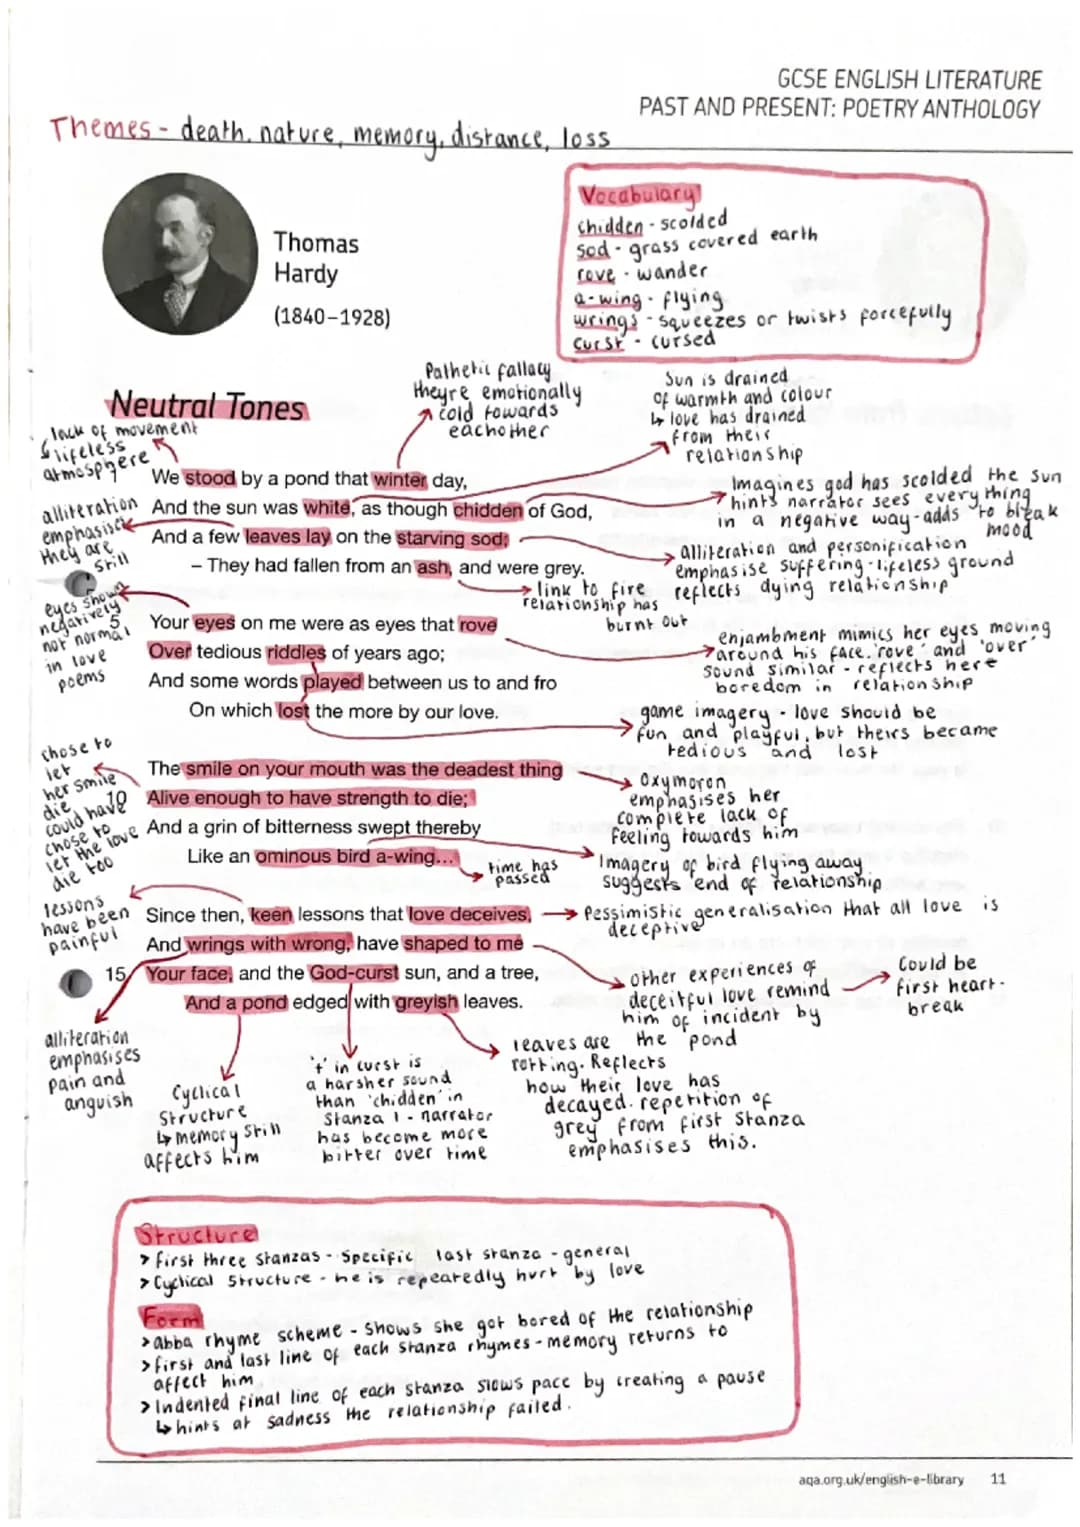 GCSE ENGLISH LITERATURE
PAST AND PRESENT: POETRY ANTHOLOGY
Themes - death, nature, memory, distance, loss
Vocabulary
chidden - scolded
sod - grass covered earth
rove - wander
a-wing - flying
wrings - squeezes or twists forcefully
curst - cursed
Thomas
Hardy
(1840–1928)
Pathetic fallacy
theyre emotionally
cold towards
eachother
Sun is drained
of warmth and colour
↳ love has drained
from their
relationship
Neutral Tones
lack of movement
↳ lifeless
atmosphere
We stood by a pond that winter day,
And the sun was white, as though chidden of God,
And a few leaves lay on the starving sod;
– They had fallen from an ash, and were grey.
Imagines god has scolded the sun
hints narrator sees everything
in a negative way - adds to bleak
mood
alliteration
emphasises
they are
still
alliteration and personification
emphasise suffering - lifeless ground
reflects dying relationship
link to fire
relationship has
burnt out
eyes shown
negatively
not normal
in love
poems
5
Your eyes on me were as eyes that rove
Over tedious riddles of years ago;
And some words played between us to and fro
On which lost the more by our love.
enjambment mimics her eyes moving
around his face. 'rove' and 'over'
sound similar - reflects here
boredom in relationship
game imagery - love should be
fun and playful, but theirs became
tedious and lost
chose to
let
her smile
die
could have
chose to
let the love
die too
The smile on your mouth was the deadest thing
10
Alive enough to have strength to die;
And a grin of bitterness swept thereby
Like an ominous bird a-wing...
Oxymoron
emphasises her
complete lack of
feeling towards him
time has
passed
Imagery of bird flying away
suggests end of relationship
lessons
have been
painful
Since then, keen lessons that love deceives,
And wrings with wrong, have shaped to me
15
Your face, and the God-curst sun, and a tree,
And a pond edged with greyish leaves.
Pessimistic generalisation that all love is
deceptive
other experiences of
deceitful love remind
him of incident by
the pond
Could be
first heart-
break
alliteration
emphasises
pain and
anguish
Cyclical
structure
↳ memory still
affects him
't' in curst is
a harsher sound
than 'chidden' in
Stanza 1 - narrator
has become more
bitter over time
leaves are
rotting. Reflects
how their love has
decayed. repetition of
grey from first stanza
emphasises this.
Structure
> first three stanzas - specific last stanza - general
> Cyclical structure - he is repeatedly hurt by love
Form
> abba rhyme scheme - shows she got bored of the relationship
> first and last line of each stanza rhymes - memory returns to
affect him
> Indented final line of each stanza slows pace by creating a pause
↳ hints at sadness the relationship failed.
aqa.org.uk/english-e-library 11